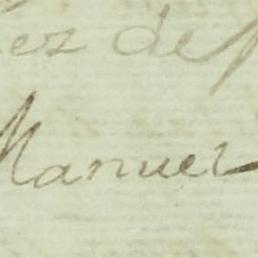 ez de
Manuel